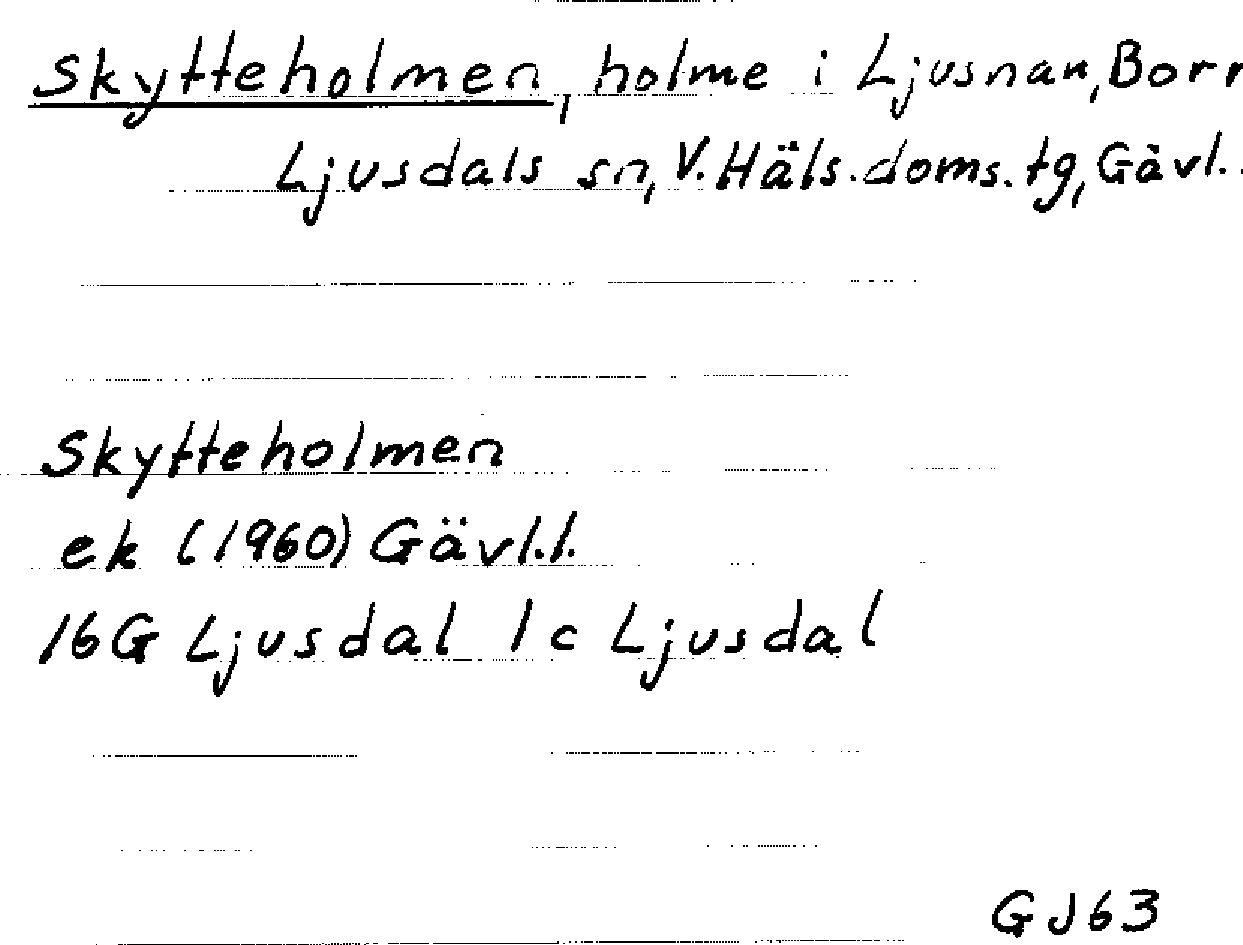 Skytteholmen, holme i Ljusnan, Borr
Ljusdals sn, V. Häls. doms. tg, Gävl.
Skytteholmen
ek (1960) Gävl.l.
16G Ljusdal 1c Ljusdal
GJ63